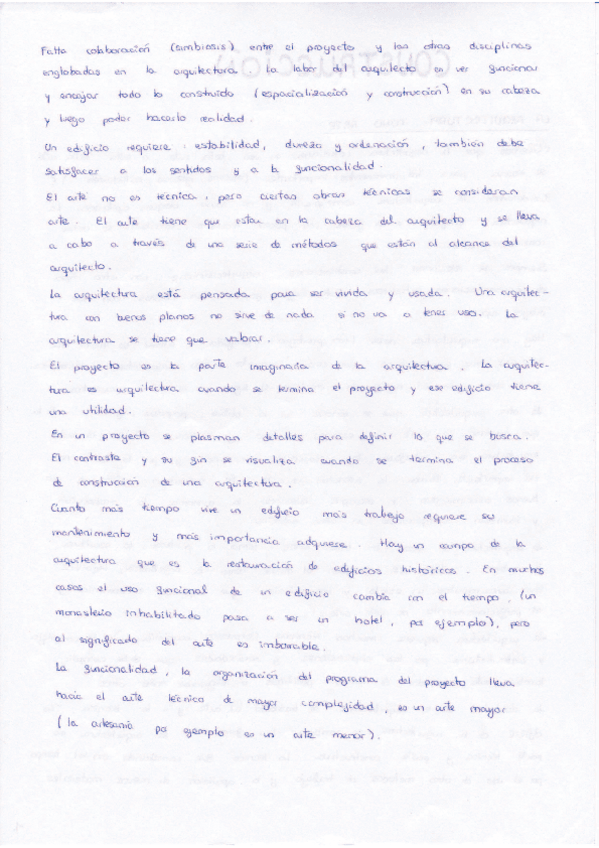 Falta colaboración (simbiosis) entre el proyecto y las otras disciplinas
englobadas en la arquitectura. La labor del arquitecto en ver funcionar
y encajar todo lo construido (espacialización y construcción) en su cabeza
y luego poder hacerlo realidad.
Un edificio requiere: estabilidad, dureza y ordenación, también debe
satisfacer a los sentidos y a la funcionalidad.
El arte no es técnica, pero ciertas obras técnicas se consideran
arte. El arte tiene que estar en la cabeza del arquitecto y se lleva
a cabo a través de una serie de métodos que están al alcance del
arquitecto.
La arquitectura está pensada para ser vivida y usada. Una arquitec-
tura con bienos planos no sirve de nada si no va a tener uso. La
arquitectura se tiene que valorar.
El proyecto es la parte imaginaria de la arquitectura. La arquitec-
tura es arquitectura cuando se termina el proyecto y ese edificio tiene
una utilidad.
En un proyecto se plasman detalles para definir lo que se busca.
El contraste y su fin se visualiza cuando se termina el proceso
de construcción de una arquitectura.
Cuanto más tiempo vive un edificio más trabajo requiere su
mantenimiento y más importancia adquiere. Hay un campo de la
arquitectura que es la restauración de edificios históricos. En muchos
casos el uso funcional de un edificio cambia con el tiempo, (un
monasterio inhabilitado pasa a ser un hotel, por ejemplo), pero
el significado del arte es imborrable.
La funcionalidad, la organización del programa del proyecto lleva
hacia el arte técnico de mayor complejidad, es un arte mayor
(la artesanía por ejemplo es un arte menor).